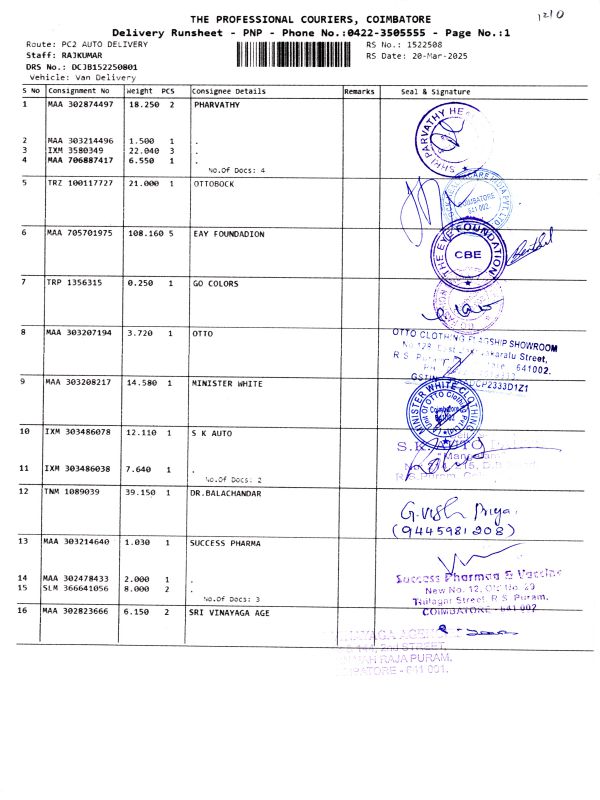 THE PROFESSIONAL COURIERS, COIMBATORE
1210
Delivery Runsheet - PNP - Phone No.:0422-3505555 - Page No.:1
Route: PC2 AUTO DELIVERY RS No.: 1522508
Staff: RAJKUMAR RS Date: 20-Mar-2025
DRS No.: DCJB152250801
Vehicle: Van Delivery
S No Consignment No Weight PCS Consignee Details Remarks Seal & Signature
1 MAA 302874497 18.250 2 PHARVATHY
SHRI PARVATHY
2 MAA 303214496 1.500 1 .
3 IXM 3580349 22.040 3 .
4 MAA 706887417 6.550 1 .
No.Of Docs: 4
5 TRZ 100117727 21.000 1 OTTOBOCK
COIMBATORE
641 002.
6 MAA 705701975 108.160 5 EAY FOUNDADION
THE EYE FOUNDATION
CBE
7 TRP 1356315 0.250 1 GO COLORS
8 MAA 303207194 3.720 1 OTTO
OTTO CLOTHING FLAGSHIP SHOWROOM
Street,
R.S. 641002.
GSTIN
9 MAA 303208217 14.580 1 MINISTER WHITE
MINISTER WHITE CLOTHING
Unit Of OTTO Clothing
Coimbatore
641002
10 IXM 303486078 12.110 1 S K AUTO
S.K. AUTO
11 IXM 303486038 7.640 1 .
No.Of Docs: 2
R.S.Puram,
12 TNM 1089039 39.150 1 DR.BALACHANDAR
G.Vish Priya
(9445981208)
13 MAA 303214640 1.030 1 SUCCESS PHARMA
14 MAA 302478433 2.000 1 .
15 SLM 366641056 8.000 2 .
No.Of Docs: 3
Success Pharmaa & Vaccine
New No. 12, Old No. 29
Thilagar Street, R.S. Puram,
COIMBATORE - 641 002
16 MAA 302823666 6.150 2 SRI VINAYAGA AGE
2nd STREET,
RAJA PURAM,
641 001.